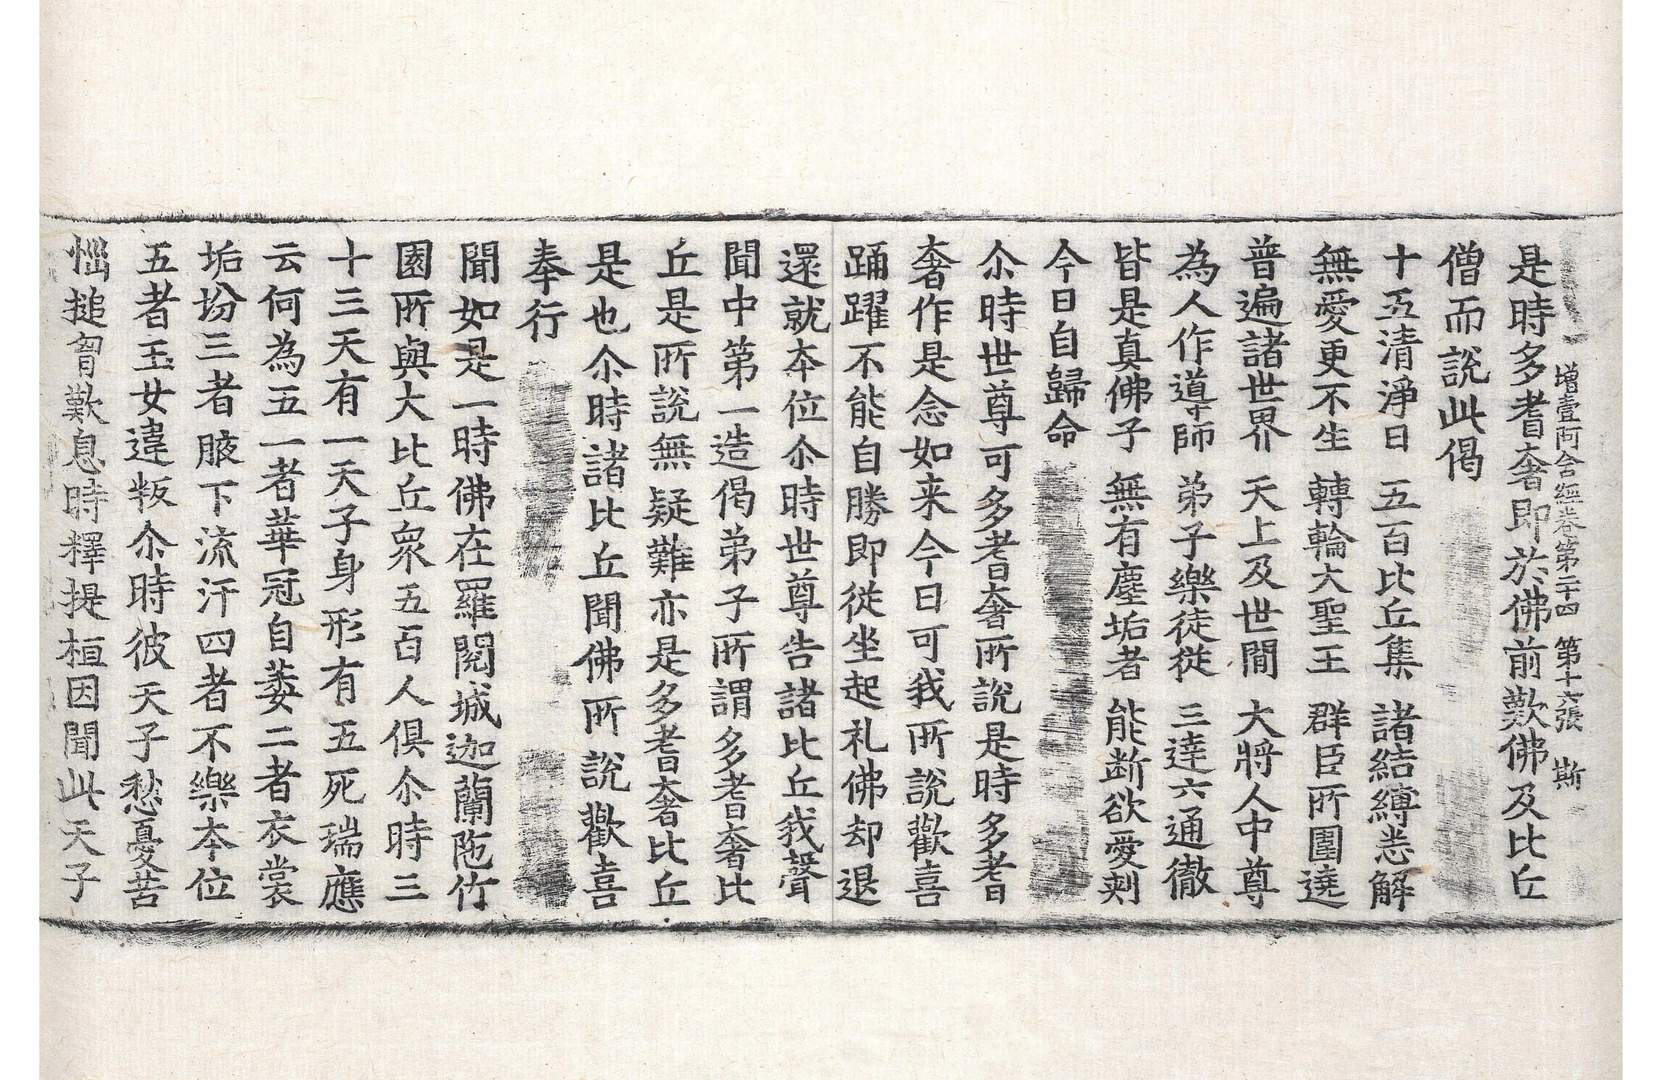 增壹阿含經卷第二十四 第十六張 斯
是時多耆奢即於佛前歎佛及比丘
僧而說此偈
十五清淨日 五百比丘集 諸結縛悉解
無愛更不生 轉輪大聖王 群臣所圍遶
普遍諸世界 天上及世間 大將人中尊
為人作導師 弟子樂徒從 三達六通徹
皆是真佛子 無有塵垢者 能断欲愛刺
今日自歸命
尒時世尊可多耆奢所說是時多耆
奢作是念如来今日可我所說歡喜
踊躍不能自勝即從坐起礼佛却退
還就本位尒時世尊告諸比丘我聲
聞中第一造偈弟子所謂多耆奢比
丘是所說無疑難亦是多耆奢比丘
是也尒時諸比丘聞佛所說歡喜
奉行
聞如是一時佛在羅閱城迦蘭陁竹
園所與大比丘衆五百人俱尒時三
十三天有一天子身形有五死瑞應
云何為五一者華冠自萎二者衣裳
垢坋三者腋下流汗四者不樂本位
五者玉女違叛尒時彼天子愁憂苦
惱搥胷歎息時釋提桓因聞此天子